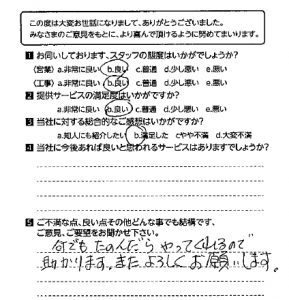 この度は大変お世話になりまして、ありがとうございました。
みなさまのご意見をもとに、より喜んで頂けるように努めてまいります。
1 お伺いしております、スタッフの態度はいかがでしょうか?
(営業) a.非常に良い b.良い c.普通 d.少し悪い e.悪い
(工事) a.非常に良い b.良い c.普通 d.少し悪い e.悪い
2 提供サービスの満足度はいかがですか?
a.非常に良い b.良い c.普通 d.少し悪い e.悪い
3 当社に対する総合的なご感想はいかがですか?
a.知人にも紹介したい b.満足した c.やや不満 d.大変不満
4 当社に今後あれば良いと思われるサービスはありますでしょうか?
5 ご不満な点、良い点その他どんな事でも結構です、
ご意見、ご要望をお聞かせ下さい。
何でもたのんだらやってくれるので
助かります。またよろしくお願いします。